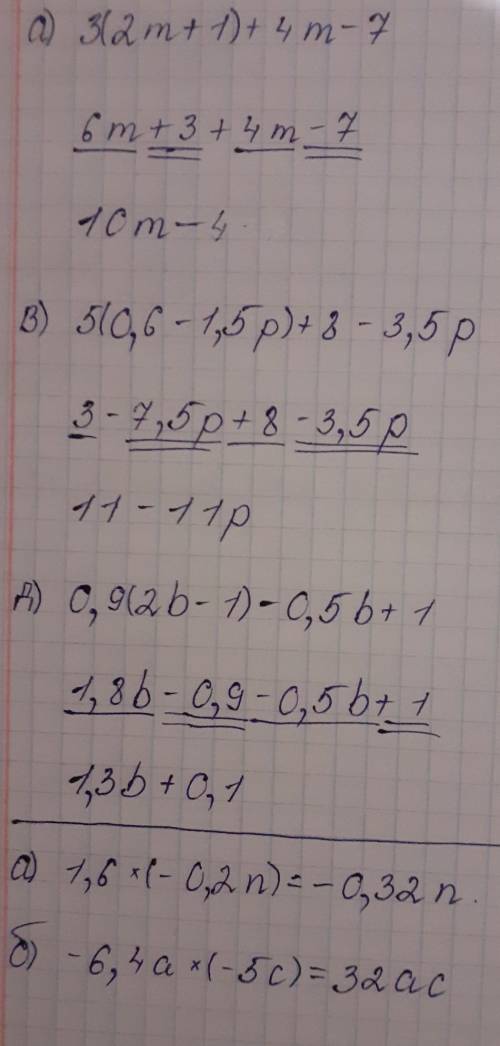 а) 3(2m+1)+4m-7
6m+3+4m-7
10m-4.
в) 5(0,6-1,5p)+8-3,5p
3-7,5p+8-3,5p
11-11p
д) 0,9(2b-1)-0,5b+1
1,8b-0,9-0,5b+1
1,3b+0,1
а) 1,6×(-0,2n)=-0,32n.
б) -6,4a×(-5c)=32ac